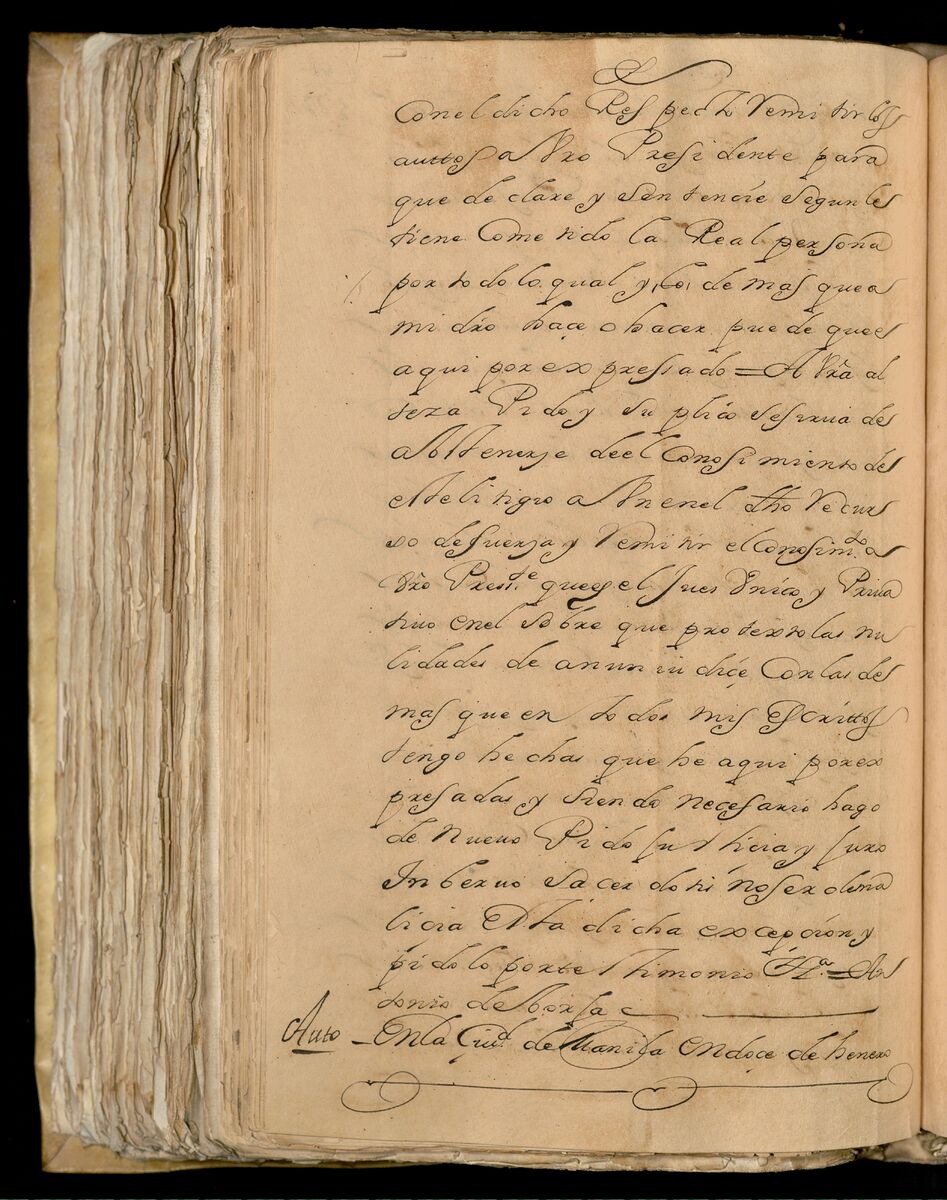 Con el dicho Respecto Remitir los
auttos a Vro Presidente para
que declare y sentencie segun les
tiene Cometido la Real persona
por todo lo qual y lo de mas que a
mi dro haçe o hacer puede que es
aqui por expressado = A Vra al
teza Pido y suplico se sirua de
abstenerse de el Conosimiento de
este litigio aun en el dho Recur
so de fuerza y Remitir el Conosimto a
Vro Presste que es el Jues Vnico y Priua
tiuo en el sobre que protexto las nu
lidades de anunciu diçe Con las de
mas que en todos mis escrittos
tengo hechas que he aqui por ex
presadas y siendo necesario hago
de nueuo Pido Justicia y Juro
In beruo sacerdoti no ser de ma
licia esta dicha excepcion y
pido lo por testimonio Ha = An
tonio de Borja
Auto - En la Ciud de Manila en doçe de henero